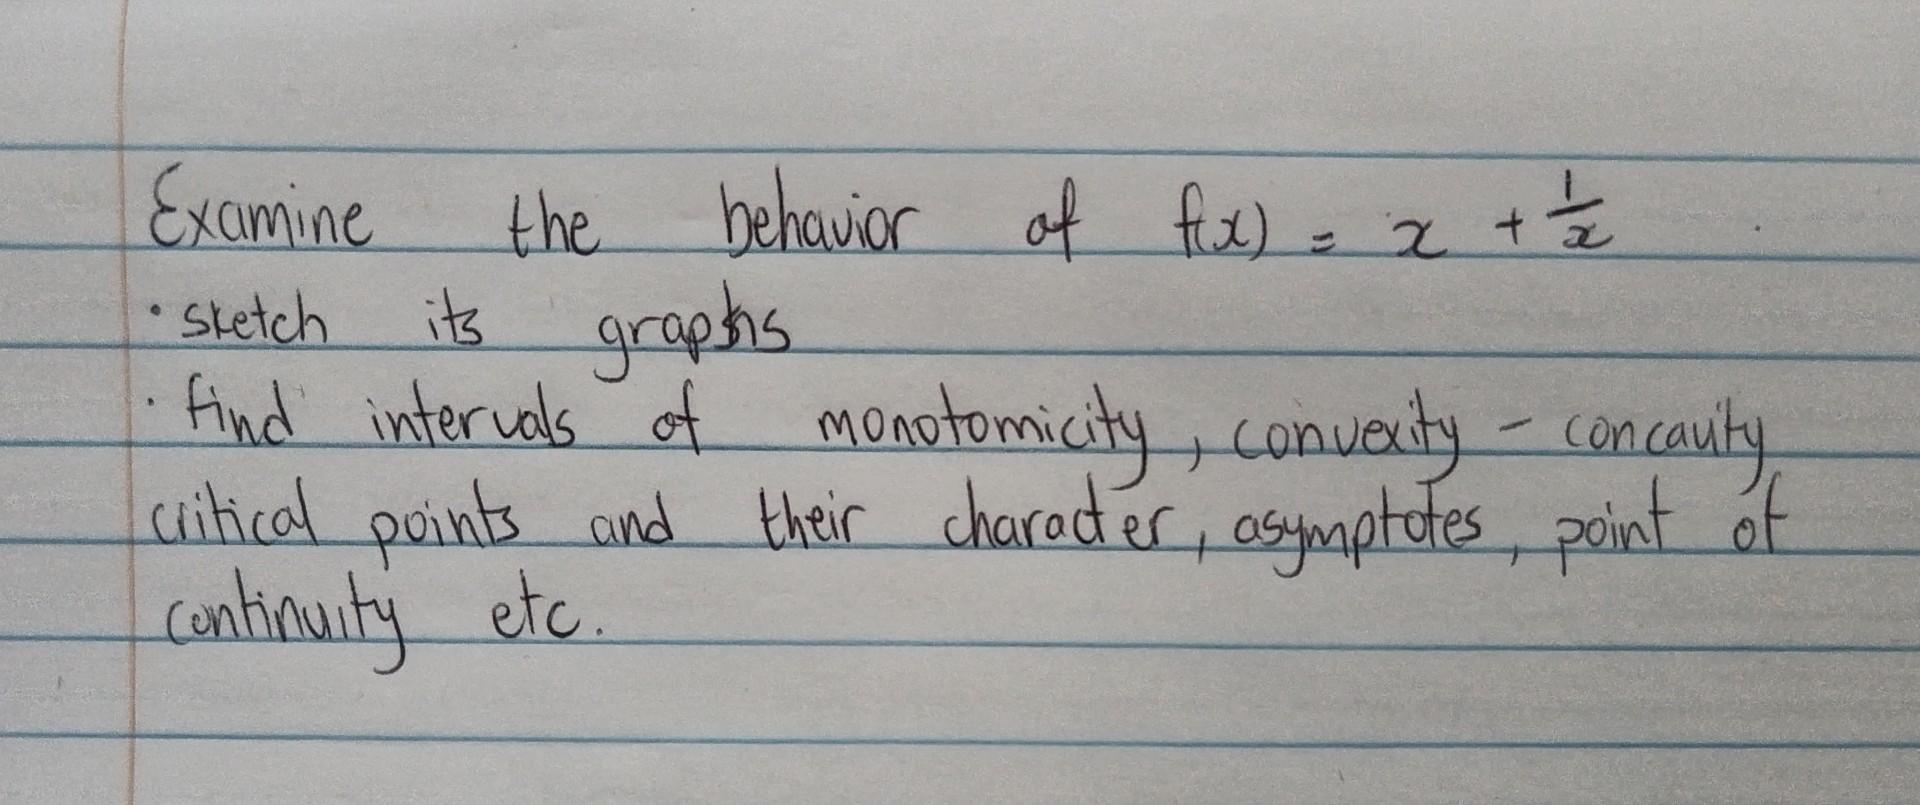 Examine the behavior of f(x) = x + 1/x
· sketch its graphs
· find intervals of monotomicity, convexity - concavity
critical points and their character, asymptotes, point of
continuity etc.